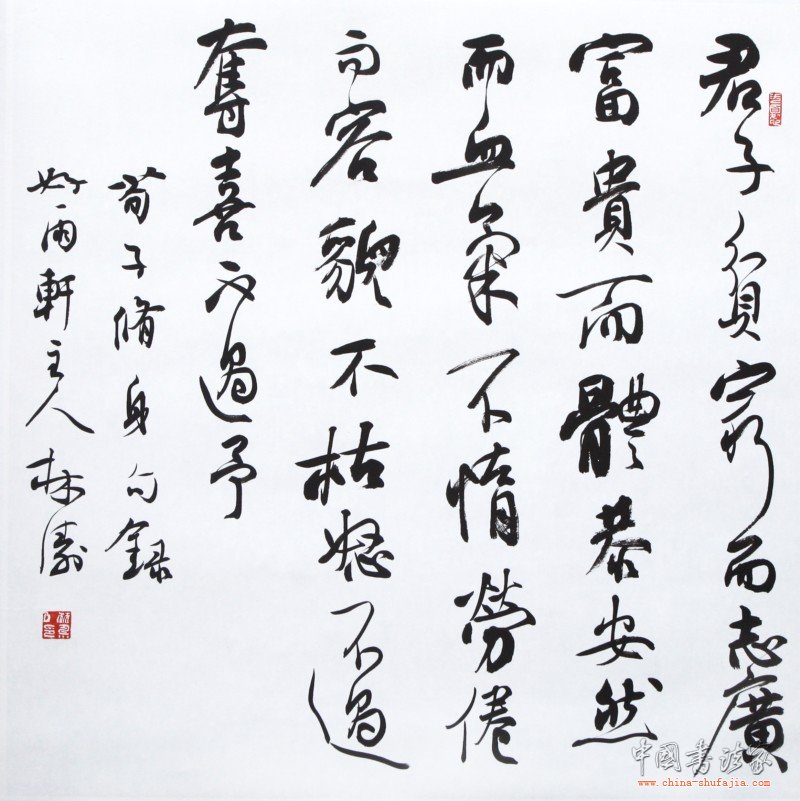 君子貧窮而志廣
富貴而體恭安然
而血氣不惰勞倦
而容貌不枯怒不過
奪喜不過予
荀子脩身句錄
好雨軒主人林濤
中國書法家
www.china-shufajia.com